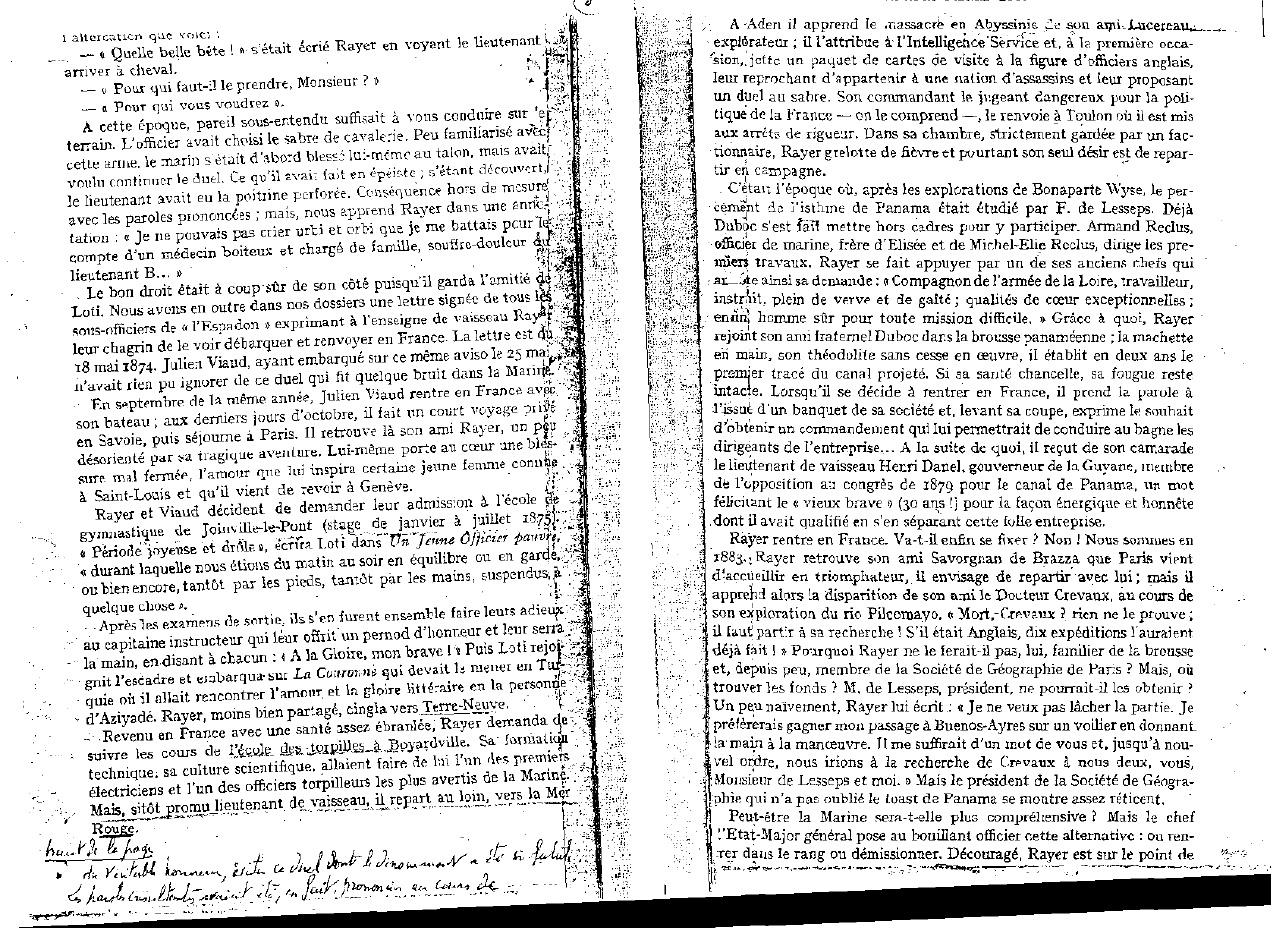 l'altercation que voici :
— « Quelle belle bête ! » s'était écrié Rayer en voyant le lieutenant
arriver à cheval.
— « Pour qui faut-il le prendre, Monsieur ? »
— « Pour qui vous voudrez ».
A cette époque, pareil sous-entendu suffisait à vous conduire sur le
terrain. L'officier avait choisi le sabre de cavalerie. Peu familiarisé avec
cette arme, le marin s'était d'abord blessé lui-même au talon, mais avait
voulu continuer le duel. Ce qu'il avait fait en épéiste ; s'étant découvert,
le lieutenant avait eu la poitrine perforée. Conséquence hors de mesure
avec les paroles prononcées ; mais, nous apprend Rayer dans une anno-
tation : « Je ne pouvais pas crier urbi et orbi que je me battais pour le
compte d'un médecin boiteux et chargé de famille, souffre-douleur du
lieutenant B... »
Le bon droit était à coup sûr de son côté puisqu'il garda l'amitié de
Loti. Nous avons en outre dans nos dossiers une lettre signée de tous les
sous-officiers de « l'Espadon » exprimant à l'enseigne de vaisseau Rayer
leur chagrin de le voir débarquer et renvoyer en France. La lettre est du
18 mai 1874. Julien Viaud, ayant embarqué sur ce même aviso le 25 mai
n'avait rien pu ignorer de ce duel qui fit quelque bruit dans la Marine.
En septembre de la même année, Julien Viaud rentre en France avec
son bateau ; aux derniers jours d'octobre, il fait un court voyage privé
en Savoie, puis séjourne à Paris. Il retrouve là son ami Rayer, un peu
désorienté par sa tragique aventure. Lui-même porte au cœur une bles-
sure mal fermée, l'amour que lui inspira certaine jeune femme connue
à Saint-Louis et qu'il vient de revoir à Genève.
Rayer et Viaud décident de demander leur admission à l'école de
gymnastique de Joinville-le-Pont (stage de janvier à juillet 1875).
« Période joyeuse et drôle », écrira Loti dans Un Jeune Officier pauvre,
« durant laquelle nous étions du matin au soir en équilibre ou en garde,
ou bien encore, tantôt par les pieds, tantôt par les mains, suspendus à
quelque chose ».
Après les examens de sortie, ils s'en furent ensemble faire leurs adieux
au capitaine instructeur qui leur offrit un pernod d'honneur et leur serra
la main, en disant à chacun : « A la Gloire, mon brave ! » Puis Loti rejoi-
gnit l'escadre et embarqua sur La Couronne qui devait le mener en Tur-
quie où il allait rencontrer l'amour et la gloire littéraire en la personne
d'Aziyadé. Rayer, moins bien partagé, cingla vers Terre-Neuve.
Revenu en France avec une santé assez ébranlée, Rayer demanda de
suivre les cours de l'école des torpilles à Boyardville. Sa formation
technique, sa culture scientifique, allaient faire de lui l'un des premiers
électriciens et l'un des officiers torpilleurs les plus avertis de la Marine.
Mais, sitôt promu lieutenant de vaisseau, il repart au loin, vers la Mer
Rouge.
de la page
du véritable honneur, ce duel dont le dénouement a été si
les paroles été, en fait, prononcées au cours de
A Aden il apprend le massacre en Abyssinie de son ami Lucereau,
explorateur ; il l'attribue à l'Intelligence Service et, à la première occa-
sion, jette un paquet de cartes de visite à la figure d'officiers anglais,
leur reprochant d'appartenir à une nation d'assassins et leur proposant
un duel au sabre. Son commandant le jugeant dangereux pour la poli-
tique de la France — on le comprend —, le renvoie à Toulon où il est mis
aux arrêts de rigueur. Dans sa chambre, strictement gardée par un fac-
tionnaire, Rayer grelotte de fièvre et pourtant son seul désir est de repar-
tir en campagne.
C'était l'époque où, après les explorations de Bonaparte Wyse, le per-
cement de l'isthme de Panama était étudié par F. de Lesseps. Déjà
Duboc s'est fait mettre hors cadres pour y participer. Armand Reclus,
officier de marine, frère d'Elisée et de Michel-Elie Reclus, dirige les pre-
miers travaux. Rayer se fait appuyer par un de ses anciens chefs qui
ainsi sa demande : « Compagnon de l'armée de la Loire, travailleur,
instruit, plein de verve et de gaîté ; qualités de cœur exceptionnelles ;
enfin, homme sûr pour toute mission difficile. » Grâce à quoi, Rayer
rejoint son ami fraternel Duboc dans la brousse panaméenne ; la machette
en main, son théodolite sans cesse en œuvre, il établit en deux ans le
premier tracé du canal projeté. Si sa santé chancelle, sa fougue reste
intacte. Lorsqu'il se décide à rentrer en France, il prend la parole à
l'issue d'un banquet de sa société et, levant sa coupe, exprime le souhait
d'obtenir un commandement qui lui permettrait de conduire au bagne les
dirigeants de l'entreprise... A la suite de quoi, il reçut de son camarade
le lieutenant de vaisseau Henri Danel, gouverneur de la Guyane, membre
de l'opposition au congrès de 1879 pour le canal de Panama, un mot
félicitant le « vieux brave » (30 ans !) pour la façon énergique et honnête
dont il avait qualifié en s'en séparant cette folle entreprise.
Rayer rentre en France. Va-t-il enfin se fixer ? Non ! Nous sommes en
1883. Rayer retrouve son ami Savorgnan de Brazza que Paris vient
d'accueillir en triomphateur, il envisage de repartir avec lui ; mais il
apprend alors la disparition de son ami le Docteur Crevaux, au cours de
son exploration du rio Pilcomayo. « Mort, Crevaux ? rien ne le prouve ;
il faut partir à sa recherche ! S'il était Anglais, dix expéditions l'auraient
déjà fait ! » Pourquoi Rayer ne le ferait-il pas, lui, familier de la brousse
et, depuis peu, membre de la Société de Géographie de Paris ? Mais, où
trouver les fonds ? M. de Lesseps, président, ne pourrait-il les obtenir ?
Un peu naïvement, Rayer lui écrit : « Je ne veux pas lâcher la partie. Je
préférerais gagner mon passage à Buenos-Ayres sur un voilier en donnant
la main à la manœuvre. Il me suffirait d'un mot de vous et, jusqu'à nou-
vel ordre, nous irions à la recherche de Crevaux à nous deux, vous,
Monsieur de Lesseps et moi. » Mais le président de la Société de Géogra-
phie qui n'a pas oublié le toast de Panama se montre assez réticent.
Peut-être la Marine sera-t-elle plus compréhensive ? Mais le chef
l'Etat-Major général pose au bouillant officier cette alternative : ou ren-
trer dans le rang ou démissionner. Découragé, Rayer est sur le point de